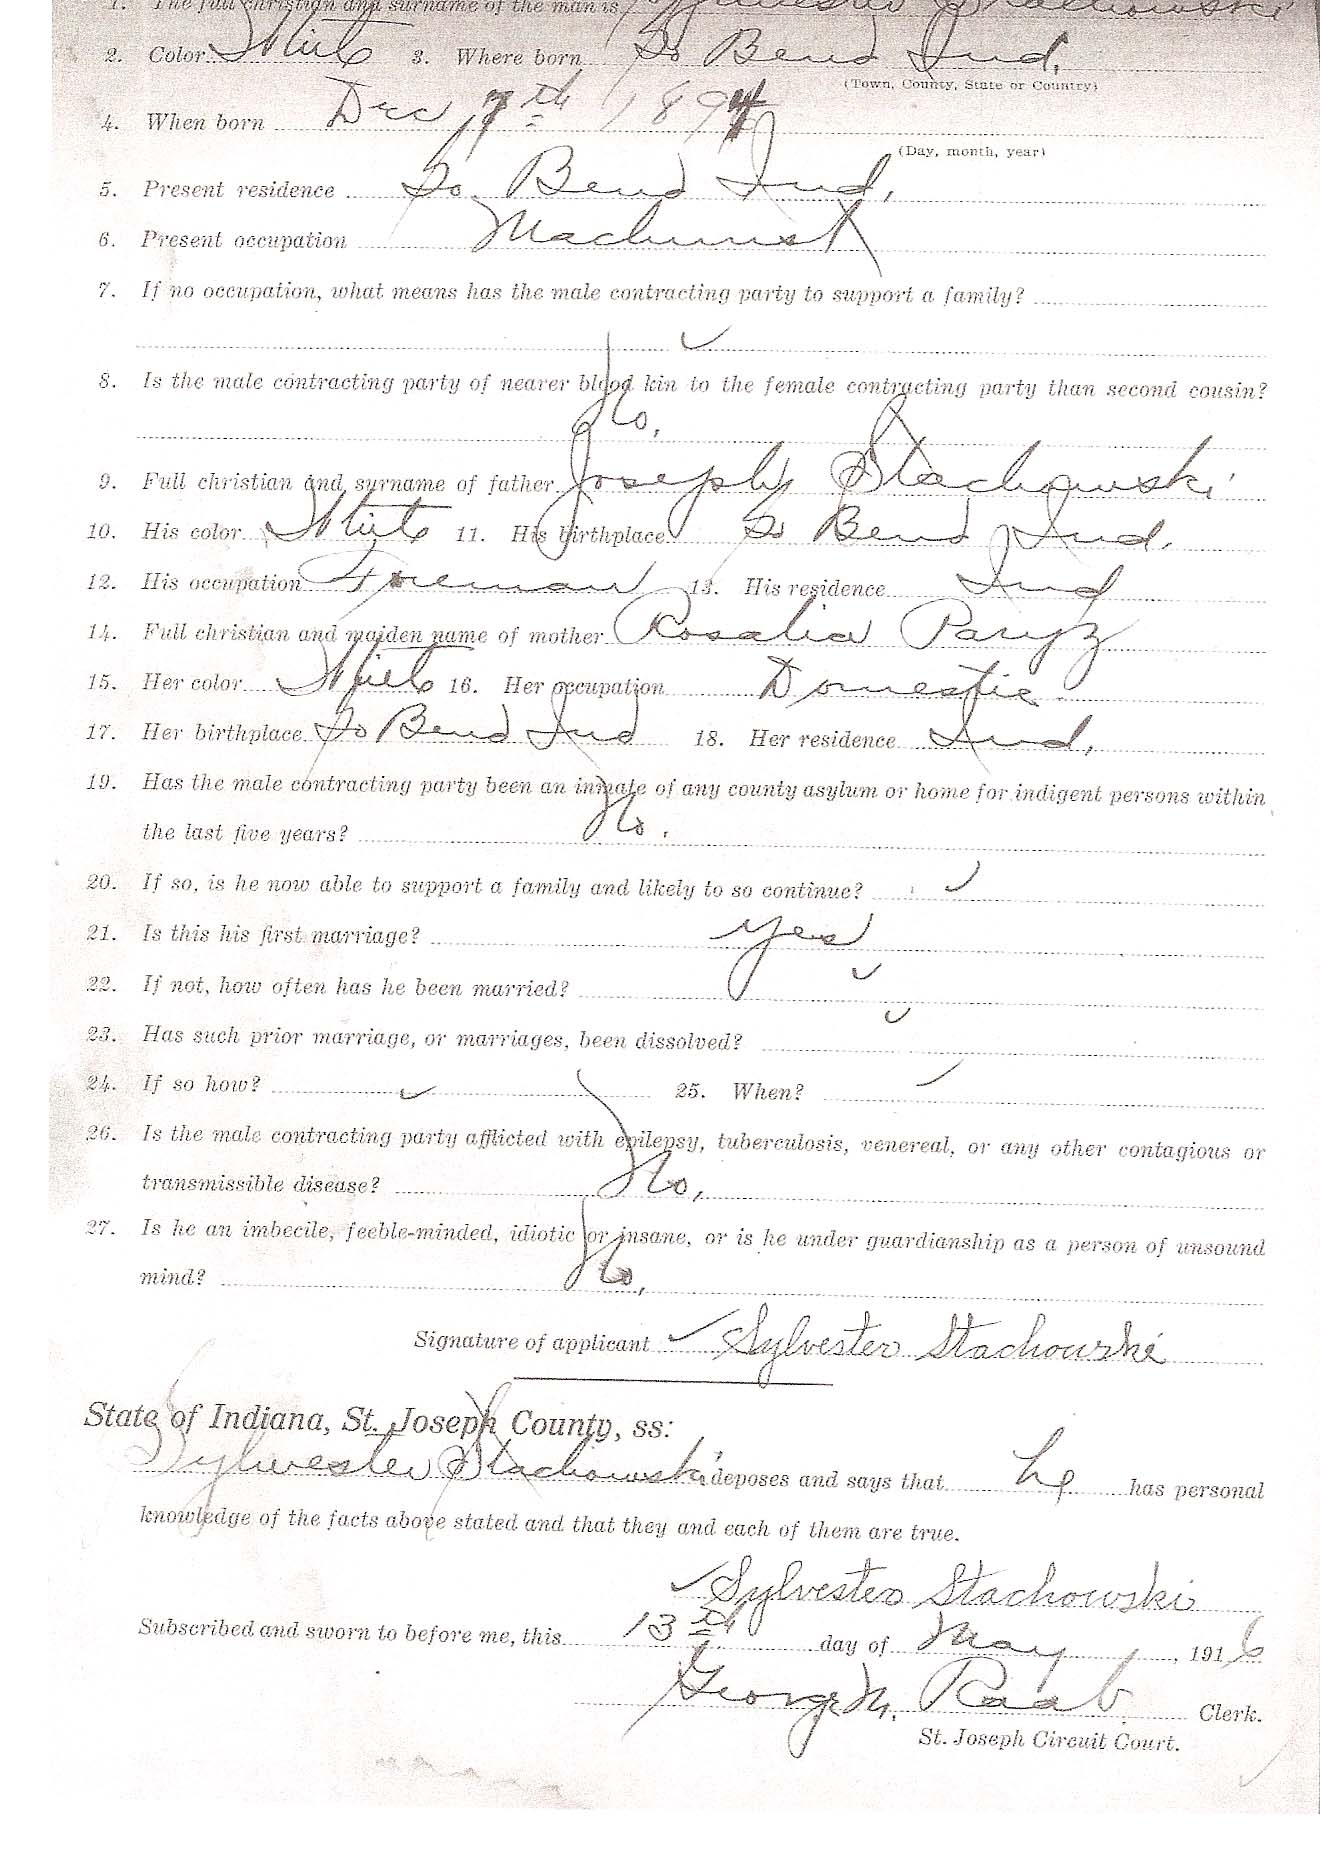 1. The full christian and surname of the man is Sylvester Stachowski
2. Color White 3. Where born So Bend Ind.
(Town, County, State or Country)
4. When born Dec 7th 1894
(Day, month, year)
5. Present residence So. Bend Ind.
6. Present occupation Machinist
7. If no occupation, what means has the male contracting party to support a family?
✓
8. Is the male contracting party of nearer blood kin to the female contracting party than second cousin?
No.
9. Full christian and surname of father Joseph Stachowski
10. His color White 11. His birthplace So Bend Ind.
12. His occupation Foreman 13. His residence Ind
14. Full christian and maiden name of mother Rosalia Paryz
15. Her color White 16. Her occupation Domestic
17. Her birthplace So Bend Ind 18. Her residence Ind.
19. Has the male contracting party been an inmate of any county asylum or home for indigent persons within
the last five years? No.
20. If so, is he now able to support a family and likely to so continue? ✓
21. Is this his first marriage? yes
22. If not, how often has he been married? ✓
23. Has such prior marriage, or marriages, been dissolved? ✓
24. If so how? ✓ 25. When? ✓
26. Is the male contracting party afflicted with epilepsy, tuberculosis, venereal, or any other contagious or
transmissible disease? No,
27. Is he an imbecile, feeble-minded, idiotic or insane, or is he under guardianship as a person of unsound
mind? No,
Signature of applicant ✓ Sylvester Stachowski
State of Indiana, St. Joseph County, ss:
Sylwester Stachowski deposes and says that he has personal
knowledge of the facts above stated and that they and each of them are true.
✓ Sylvester Stachowski
Subscribed and sworn to before me, this 13th day of May, 1916
George M. Raab Clerk.
St. Joseph Circuit Court.